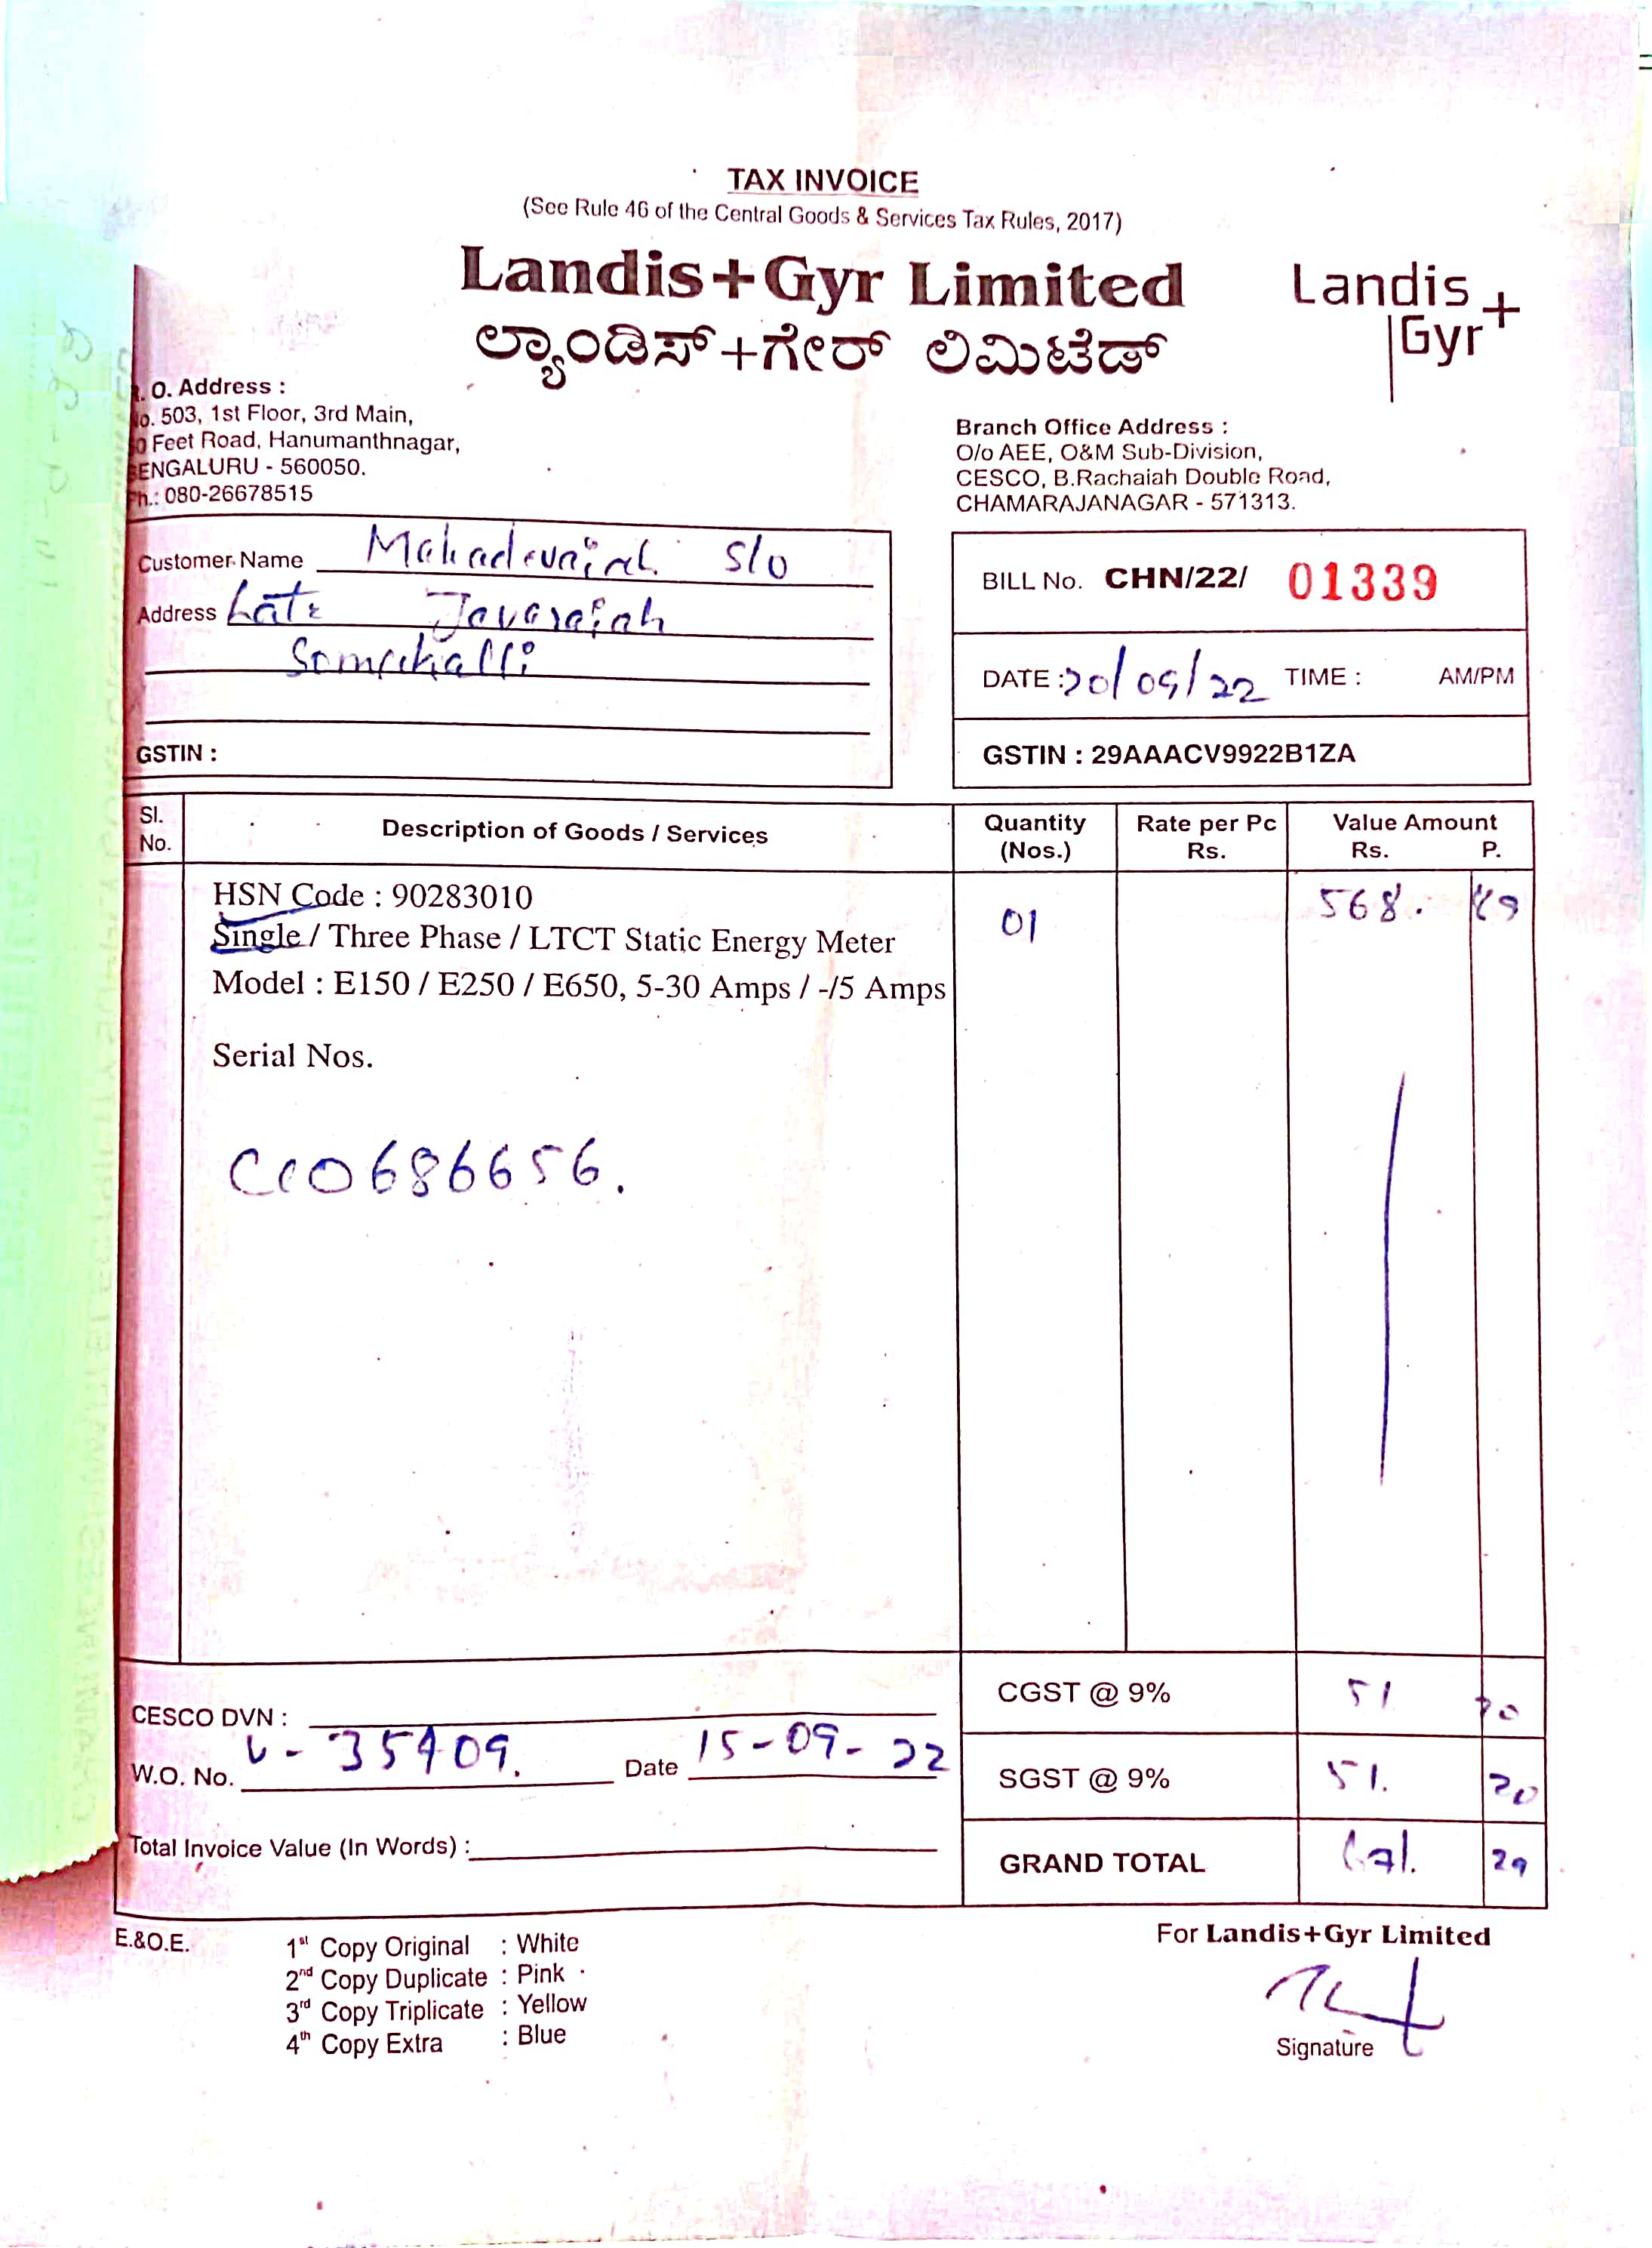 TAX INVOICE
(See Rule 46 of the Central Goods & Services Tax Rules, 2017)
Landis+Gyr Limited
ಲ್ಯಾಂಡಿಸ್+ಗೇರ್ ಲಿಮಿಟೆಡ್
Landis
Gyr+
. O. Address :
o. 503, 1st Floor, 3rd Main,
0 Feet Road, Hanumanthnagar,
BENGALURU - 560050.
Ph.: 080-26678515
Branch Office Address :
O/o AEE, O&M Sub-Division,
CESCO, B.Rachaiah Double Road,
CHAMARAJANAGAR - 571313.
Customer Name Mahadevaiah S/o
Address Late Javaraiah
GSTIN :
BILL No. CHN/22/ 01339
DATE : 20/09/22 TIME : AM/PM
GSTIN : 29AAACV9922B1ZA
Sl. No. Description of Goods / Services Quantity (Nos.) Rate per Pc Rs. Value Amount Rs. P.
HSN Code : 90283010 01 568. 89
Single / Three Phase / LTCT Static Energy Meter
Model : E150 / E250 / E650, 5-30 Amps / -/5 Amps
Serial Nos.
CC0686656.
CESCO DVN :
W.O. No. 35409. Date 15-09-22
Total Invoice Value (In Words) :
CGST @ 9% 51 20
SGST @ 9% 51. 20
GRAND TOTAL 671. 29
E.&O.E.
1st Copy Original : White
2nd Copy Duplicate : Pink
3rd Copy Triplicate : Yellow
4th Copy Extra : Blue
For Landis+Gyr Limited
Signature